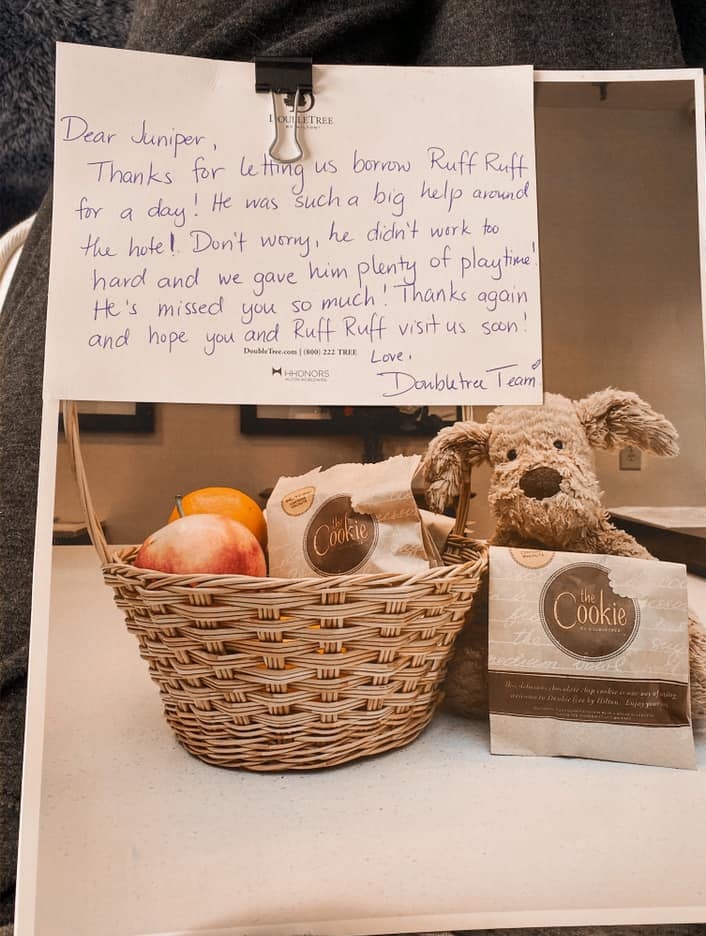 DOUBLETREE
BY HILTON™
Dear Juniper,
Thanks for letting us borrow Ruff Ruff
for a day! He was such a big help around
the hotel. Don't worry, he didn't work too
hard and we gave him plenty of playtime!
He's missed you so much! Thanks again
and hope you and Ruff Ruff visit us soon!
DoubleTree.com | (800) 222 TREE
HHONORS
HILTON WORLDWIDE
Love,
Doubletree Team
the
Cookie
the
Cookie
BY DOUBLETREE
the
medium bowl
This delicious chocolate chip cookie is our way of saying
welcome to DoubleTree by Hilton. Enjoy your